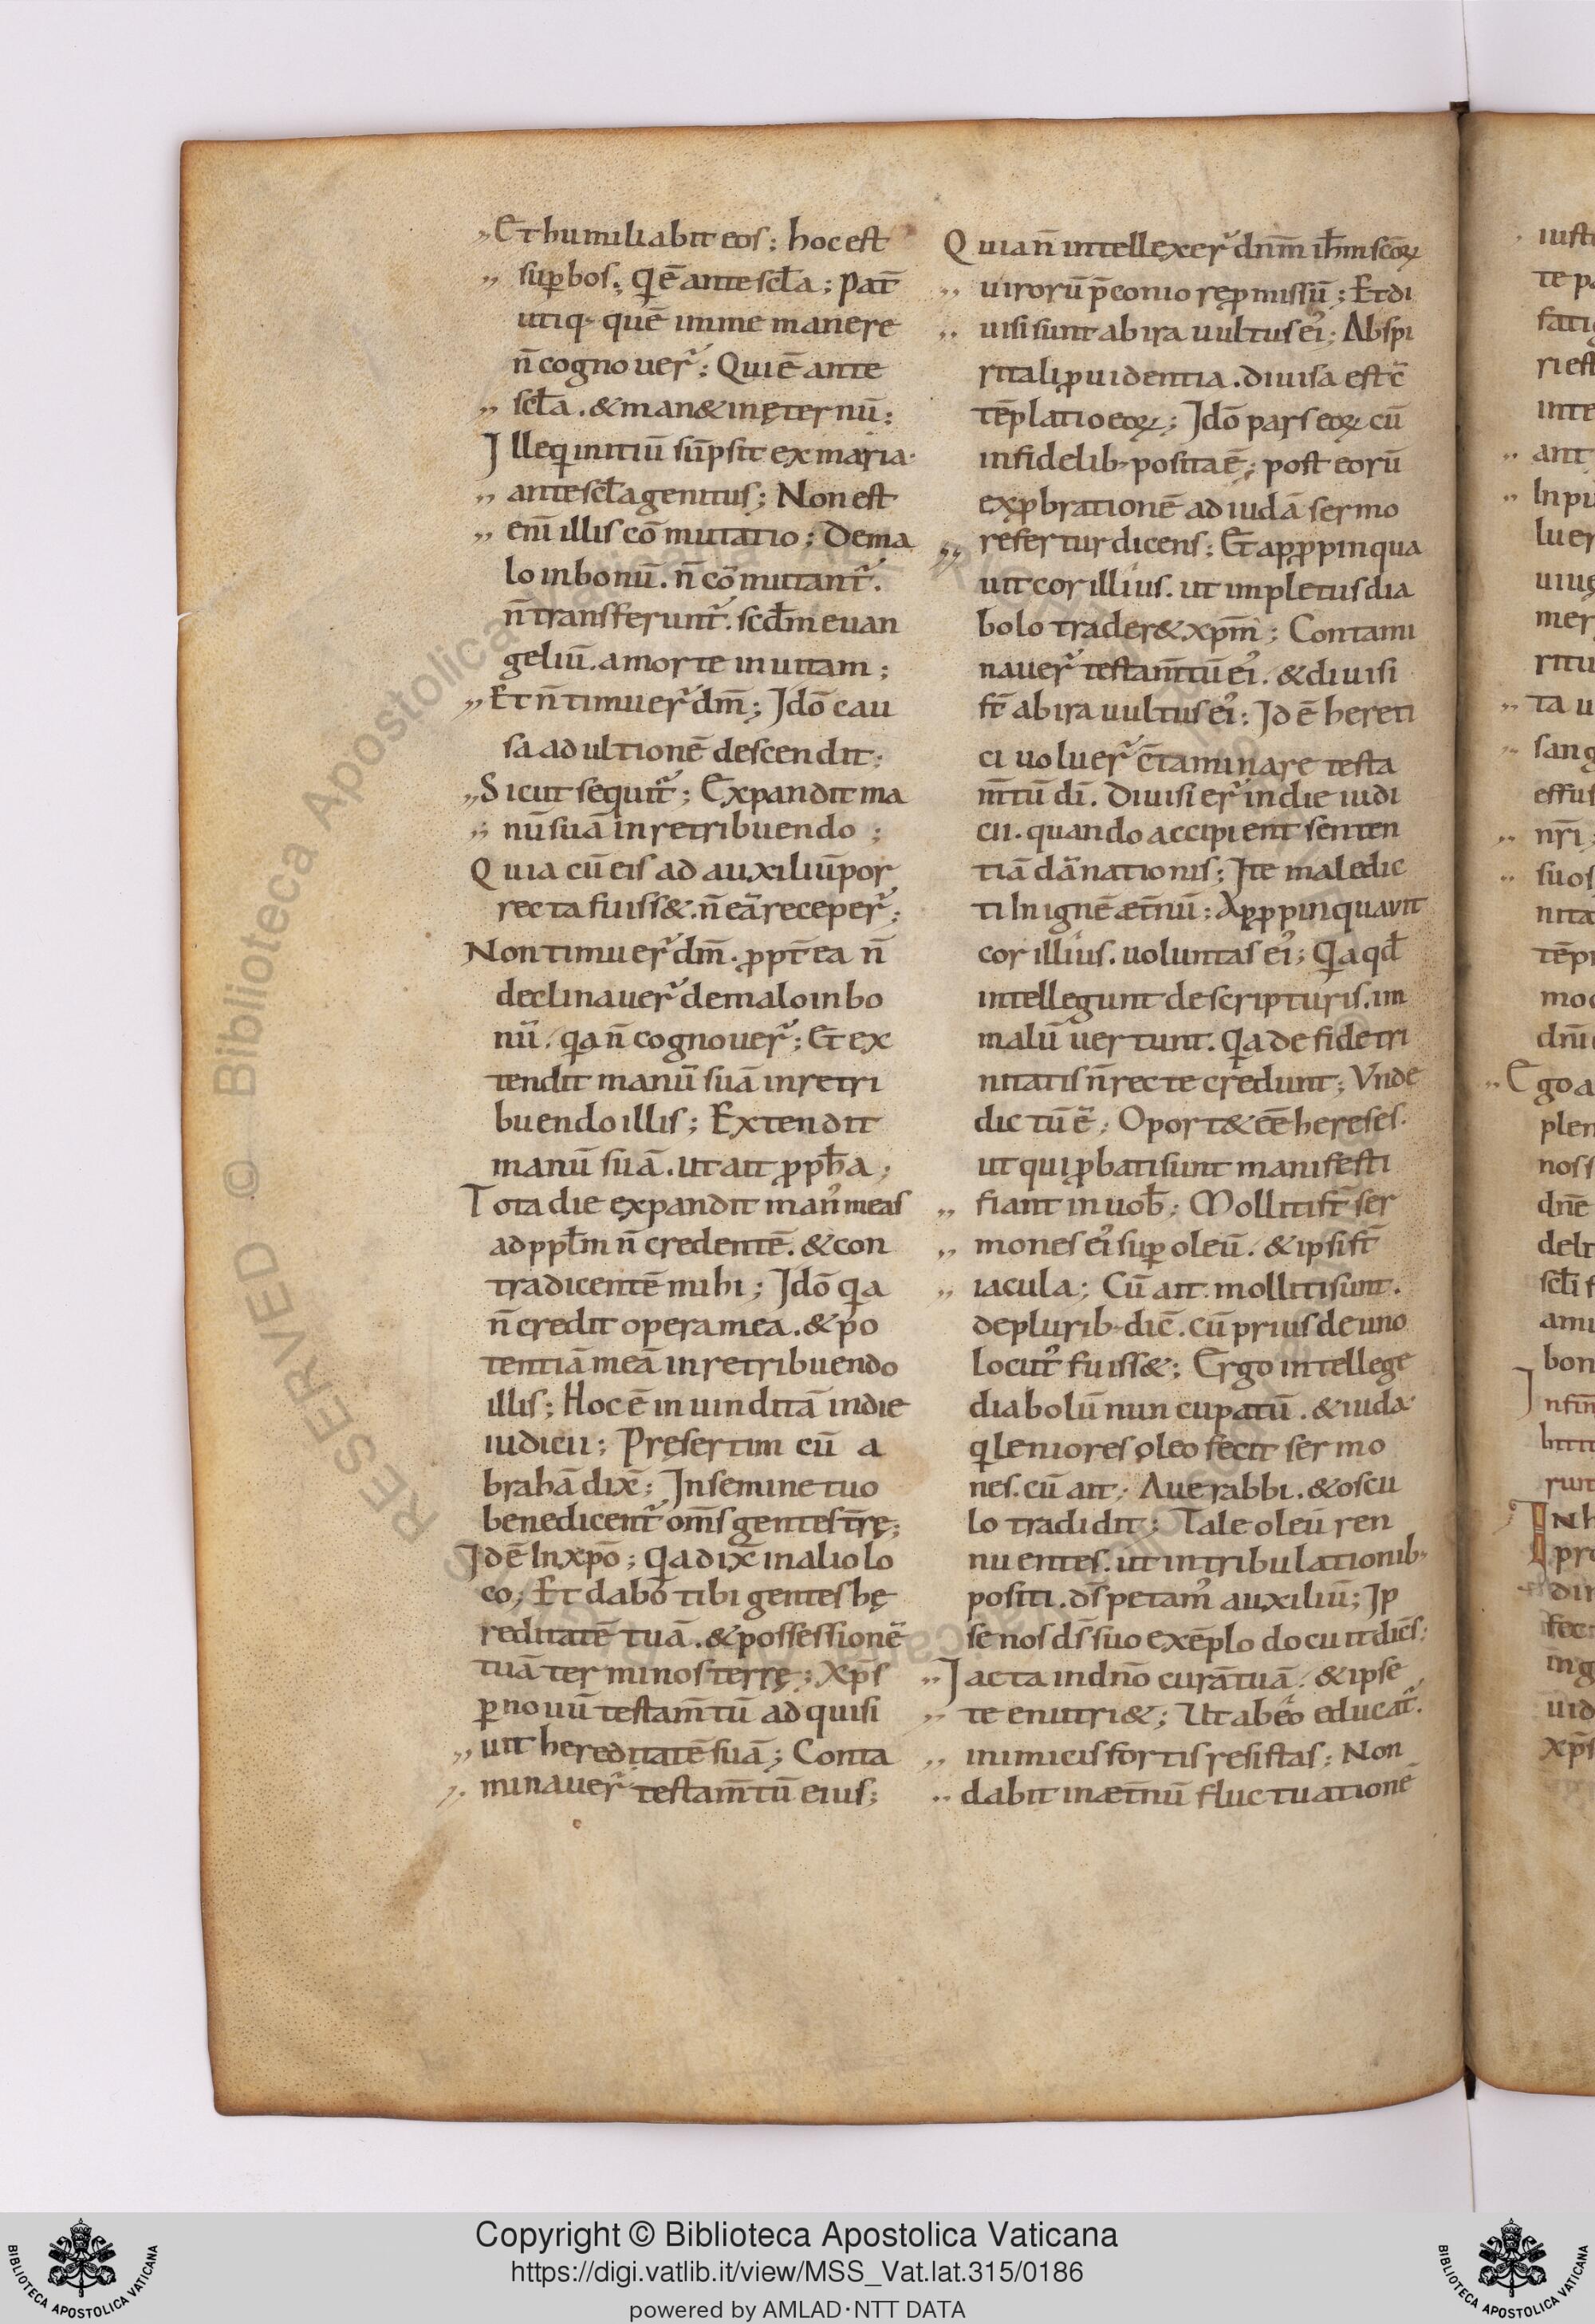 „ Et humiliabit eos; hoc est
„ suꝑbos; Qͥ ē ante sc̄l̄a; Pat̄
utiq; quē in me manere
n̄ cognoueɼ̄; Qui ē ante
„ sc̄l̄a . & man& in ęternū;
Ille qͥ initiū sūpsit ex maria.
„ ante sc̄l̄a genitus; Non est
„ eni̅ illis cō mutatio; De ma
lo in bonū . n̄ cōmutant᷑.
n̄ transferunt᷑. scd̄m euan
geliū . a morte in uitam;
„ Et n̄ timuer᷑ dm̄; Idō cau
sa ad ultionē descendit;
„ Sicut sequit᷑; Expandit ma
„ nū suā in retribuendo;
Quia cū eis ad auxiliū por
recta fuiss& . n̄ eā receper᷑;
Non timuer᷑ dm̄ . ꝓpt̄ea n̄
declinauer᷑ de malo in bo
nū . qͥa n̄ cognouer᷑; Et ex
tendit manū suā in retri
buendo illis; Extendit
manū suā . ut ait ꝓph̄a;
Tota die expandit man᷒ meas
ad ppl̄m n̄ credentē . & con
tradicentē mihi; Idō qͥa
n̄ credit opera mea . & po
tentiā meā in retribuendo
illis; Hoc ē in uinditā in die
iudicii; Pręsertim cū a
brahā dix̄; In semine tuo
benedicent᷑ om̄s gentes t̄rę;
Id ē In xp̄o; Qͥa dix̄ in alio lo
co; Et dabo tibi gentes hę
reditatē tuā . & possessionē
tuā terminos terrę; Xp̄s
ꝑ nouū testam̄tū adquisi
„ uit hereditatē suā; Conta
„ minauer᷑ testam̄tū eius;
Quia n̄ intellexer᷑ dn̄m ih̄m sc̄oꝝ
„ uirorū p̄conio ręꝓmissū; Et di
„ uisi sunt ab ira uultus ei᷒; Ab spi
ritali ꝓuidentia . diuisa est c̄
tēplatio eoꝝ; Idō pars eoꝝ cū
infidelib; posita ē; post eorū
exꝓbrationē ad iudā sermo
„ refertur dicens; Et apꝓpinqua
uit cor illius . ut impletus dia
bolo trader& xp̄m; Contami
nauer᷑ testam̄tū ei᷒ . & diuisi
st̄ ab ira uultus ei᷒; Id ē hereti
ci uoluer᷑ c̄taminare testa
m̄tū dī . Diuisi er᷑ in die iudi
cii . quando accipient senten
tiā dānationis; Ite maledic
ti In ignē æt̄nū; Apꝓpinquavit
cor illius . uoluntas ei᷒; Qͥa qd̄
intellegunt de scripturis . im
malū uertunt . Qͥa de fide tri
nitatis n̄ recte credunt; Vnde
dictū ē; Oport& ēē hereses.
ut qui ꝓbati sunt manifesti
„ fiant in uob̄; Molliti st̄ ser
„ mones ei᷒ suꝑ oleū . & ipsi st̄
„ iacula; Cū ait . molliti sunt.
de plurib; dic̄ . cū prius de uno
locut᷒ fuiss&; Ergo intellege
diabolū nuncupatū . & iuda.
qͥ leniores oleo fecit sermo
nes . cū ait; Aue rabbi . & oscu
lo tradidit; Tale oleū ren
nuentes . ut in tribulationib;
positi . ds̄ petam᷒ auxiliū; Ip
se nos ds̄ suo exēplo docuit dic̄s;
„ Iacta in dn̄o curā tuā . & ipse
„ te enutri&; Ut ab eo educat᷑.
„ inimicis fortis resistas; Non
„ dabit in æt̄nū fluctuationē
RESERVED © Biblioteca Apostolica Vaticana
Copyright © Biblioteca Apostolica Vaticana
https://digi.vatlib.it/view/MSS_Vat.lat.315/0186
powered by AMLAD·NTT DATA
BIBLIOTECA APOSTOLICA VATICANA
BIBLIOTECA APOSTOLICA VATICANA